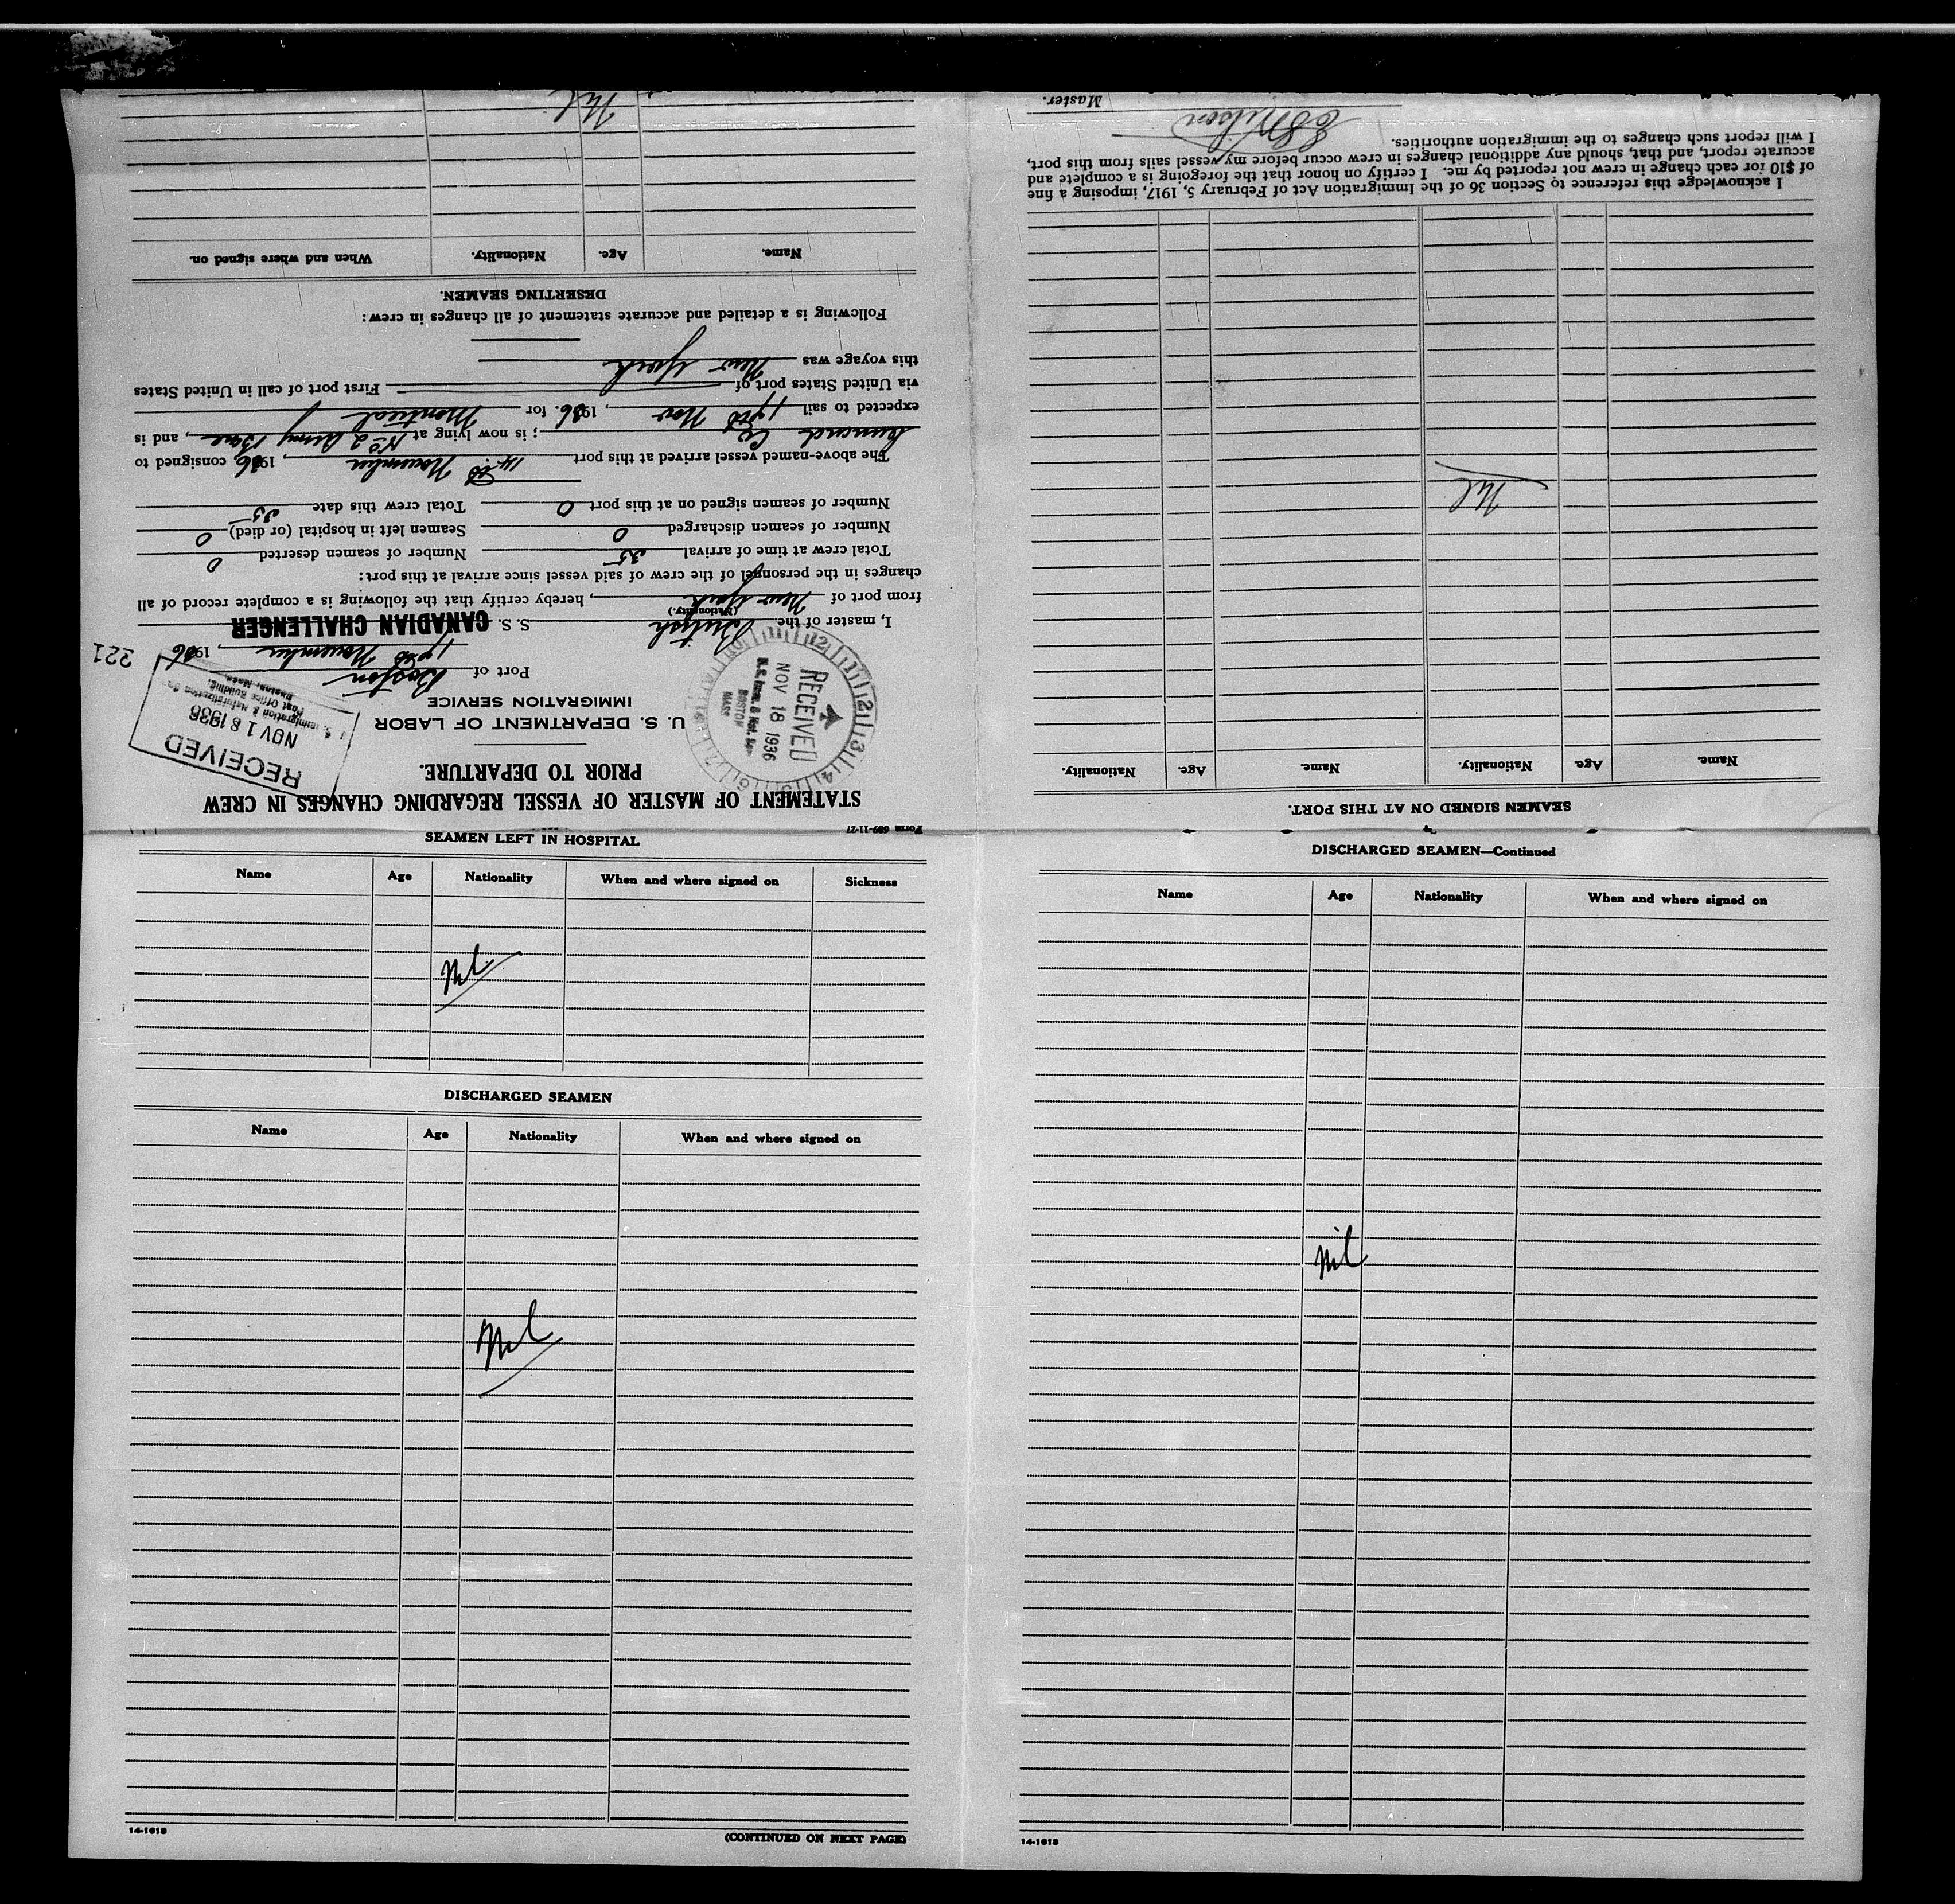 Form 689-11-27
STATEMENT OF MASTER OF VESSEL REGARDING CHANGES IN CREW
PRIOR TO DEPARTURE.
U. S. DEPARTMENT OF LABOR
IMMIGRATION SERVICE
RECEIVED
NOV 18 1936
U.S. Imm. & Nat. Ser.
BOSTON
MASS
RECEIVED
NOV 18 1936
U. S. Immigration & Naturalization Ser.
Post Office Building,
Boston, Mass.
221
Port of Boston
17th November, 1936
I, master of the British S. S. CANADIAN CHALLENGER
(Nationality.)
from port of New York, hereby certify that the following is a complete record of all
changes in the personnel of the crew of said vessel since arrival at this port:
Total crew at time of arrival 35 Number of seamen deserted 0
Number of seamen discharged 0 Seamen left in hospital (or died) 0
Number of seamen signed on at this port 0 Total crew this date 35
The above-named vessel arrived at this port 14th November, 1936, consigned to
Co; is now lying at No 2 Army Base, and is
expected to sail 17th Nov, 1936. for Montreal
via United States port of First port of call in United States
this voyage was New York
Following is a detailed and accurate statement of all changes in crew:
DESERTING SEAMEN.
Name. Age. Nationality. When and where signed on.
Nil
SEAMEN SIGNED ON AT THIS PORT.
Name. Age. Nationality. Name. Age. Nationality.
Nil
I acknowledge this reference to Section 36 of the Immigration Act of February 5, 1917, imposing a fine
of $10 for each change in crew not reported by me. I certify on honor that the foregoing is a complete and
accurate report, and that, should any additional changes in crew occur before my vessel sails from this port,
I will report such changes to the immigration authorities.
Master.
SEAMEN LEFT IN HOSPITAL
Name Age Nationality When and where signed on Sickness
Nil
DISCHARGED SEAMEN
Name Age Nationality When and where signed on
Nil
14-1613
(CONTINUED ON NEXT PAGE)
DISCHARGED SEAMEN—Continued
Name Age Nationality When and where signed on
Nil
14-1613